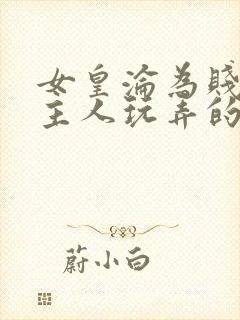 女皇淪為賤
主人玩弄的
蔚小白